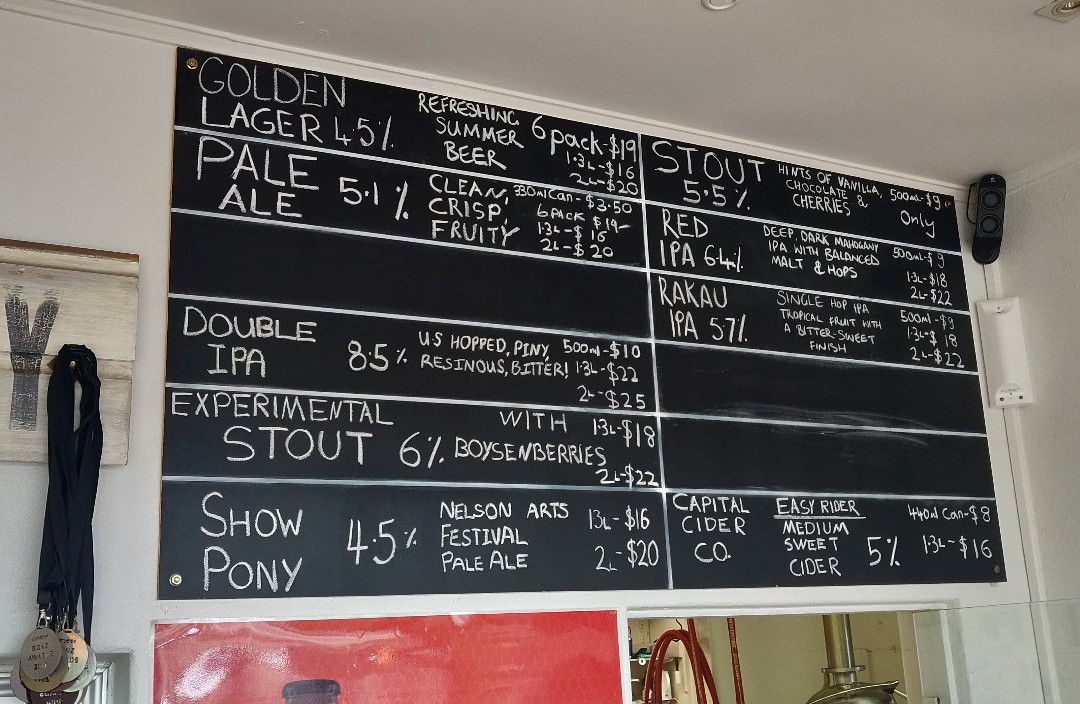 GOLDEN
LAGER 4.5%
REFRESHING
SUMMER
BEER
6 pack-$19
1.3L-$16
2L-$20
PALE
ALE
5.1%
CLEAN,
CRISP,
FRUITY
330ml Can-$3.50
6 PACK $19-
1.3L-$16
2L-$20
DOUBLE
IPA
8.5%
U.S HOPPED, PINY,
RESINOUS, BITTER!
500ml-$10
1.3L-$22
2L-$25
EXPERIMENTAL
STOUT 6%
WITH
BOYSENBERRIES
1.3L-$18
2L-$22
SHOW
PONY
4.5%
NELSON ARTS
FESTIVAL
PALE ALE
1.3L-$16
2L-$20
STOUT
5.5%
HINTS OF VANILLA,
CHOCOLATE &
CHERRIES
500ml-$9
Only
RED
IPA 6.4%
DEEP, DARK MAHOGANY
IPA WITH BALANCED
MALT & HOPS
500ml-$9
1.3L-$18
2L-$22
RAKAU
IPA 5.7%
SINGLE HOP IPA
TROPICAL FRUIT WITH
A BITTER-SWEET
FINISH
500ml-$9
1.3L-$18
2L-$22
CAPITAL
CIDER
CO.
EASY RIDER
MEDIUM
SWEET
CIDER
5%
440ml Can-$8
1.3L-$16
Y